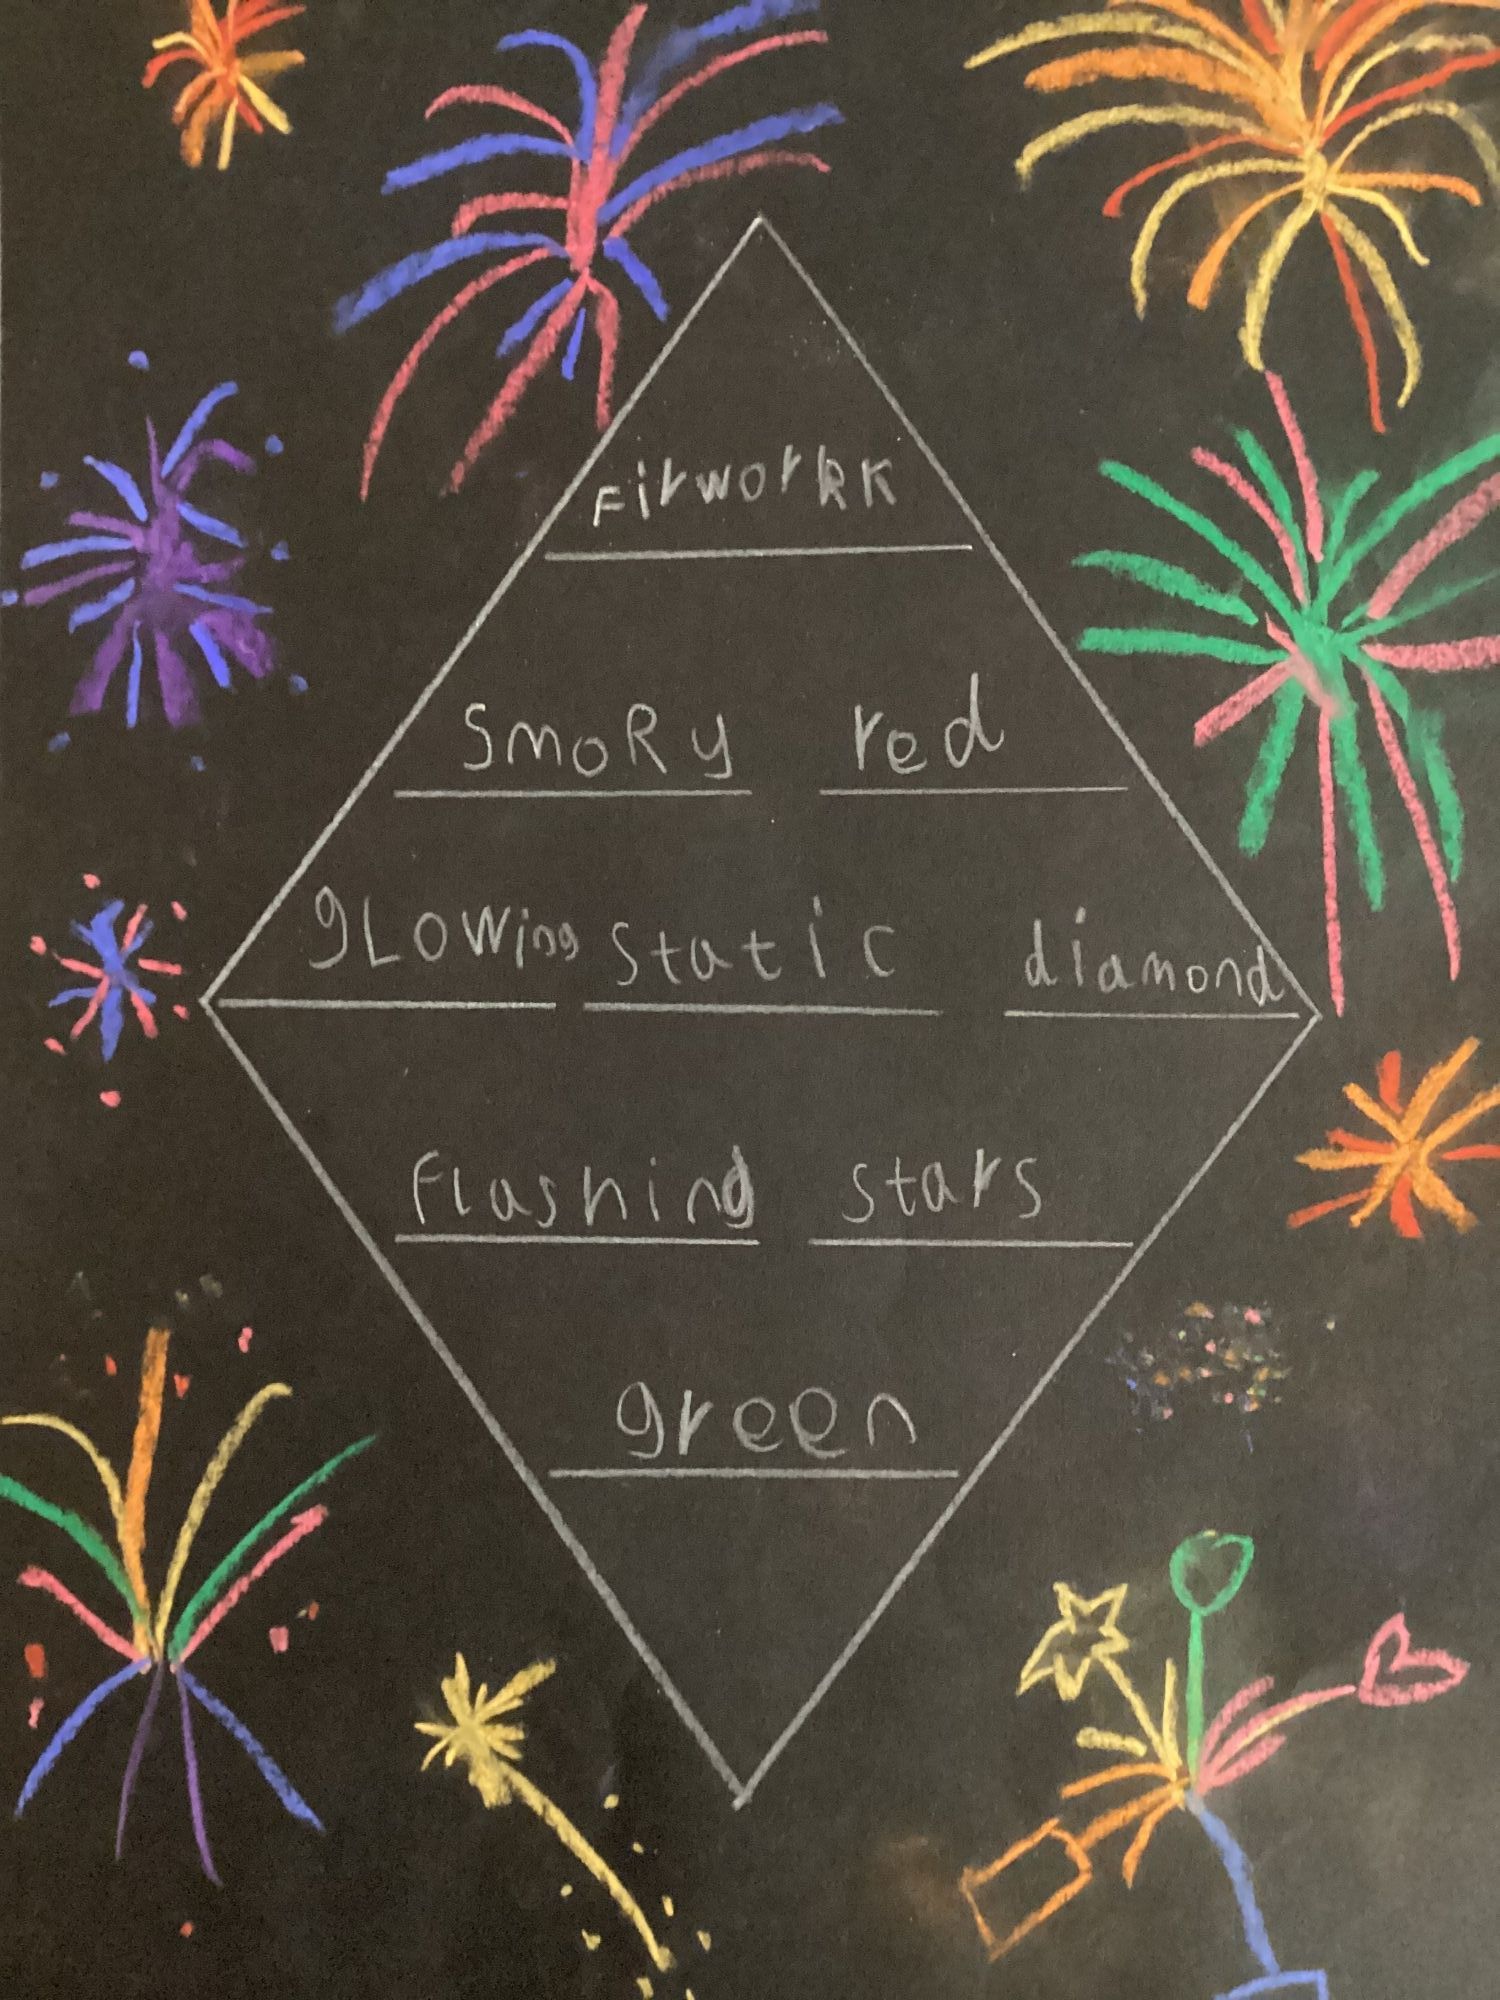 Firworkk
SmoRy red
gLOWing static diamond
Flashing stars
green